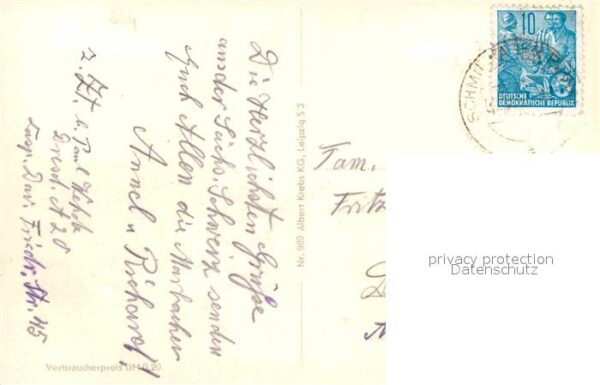 Die Herzlichsten Grüße
aus der Sächs. Schweiz senden
Euch Allen die Marbacher
Annel u Richard,
z. Zt. b. Paul
Dresd. A 20
Casp. Dav. Friedr. Str. 45
Verbraucherpreis DM 0.20
Nr. 989 Albert Krebs KG, Leipzig S 3
10
DEUTSCHE
DEMOKRATISCHE REPUBLIK
SCHMI
Fam.
Fritz
D
privacy protection
Datenschutz